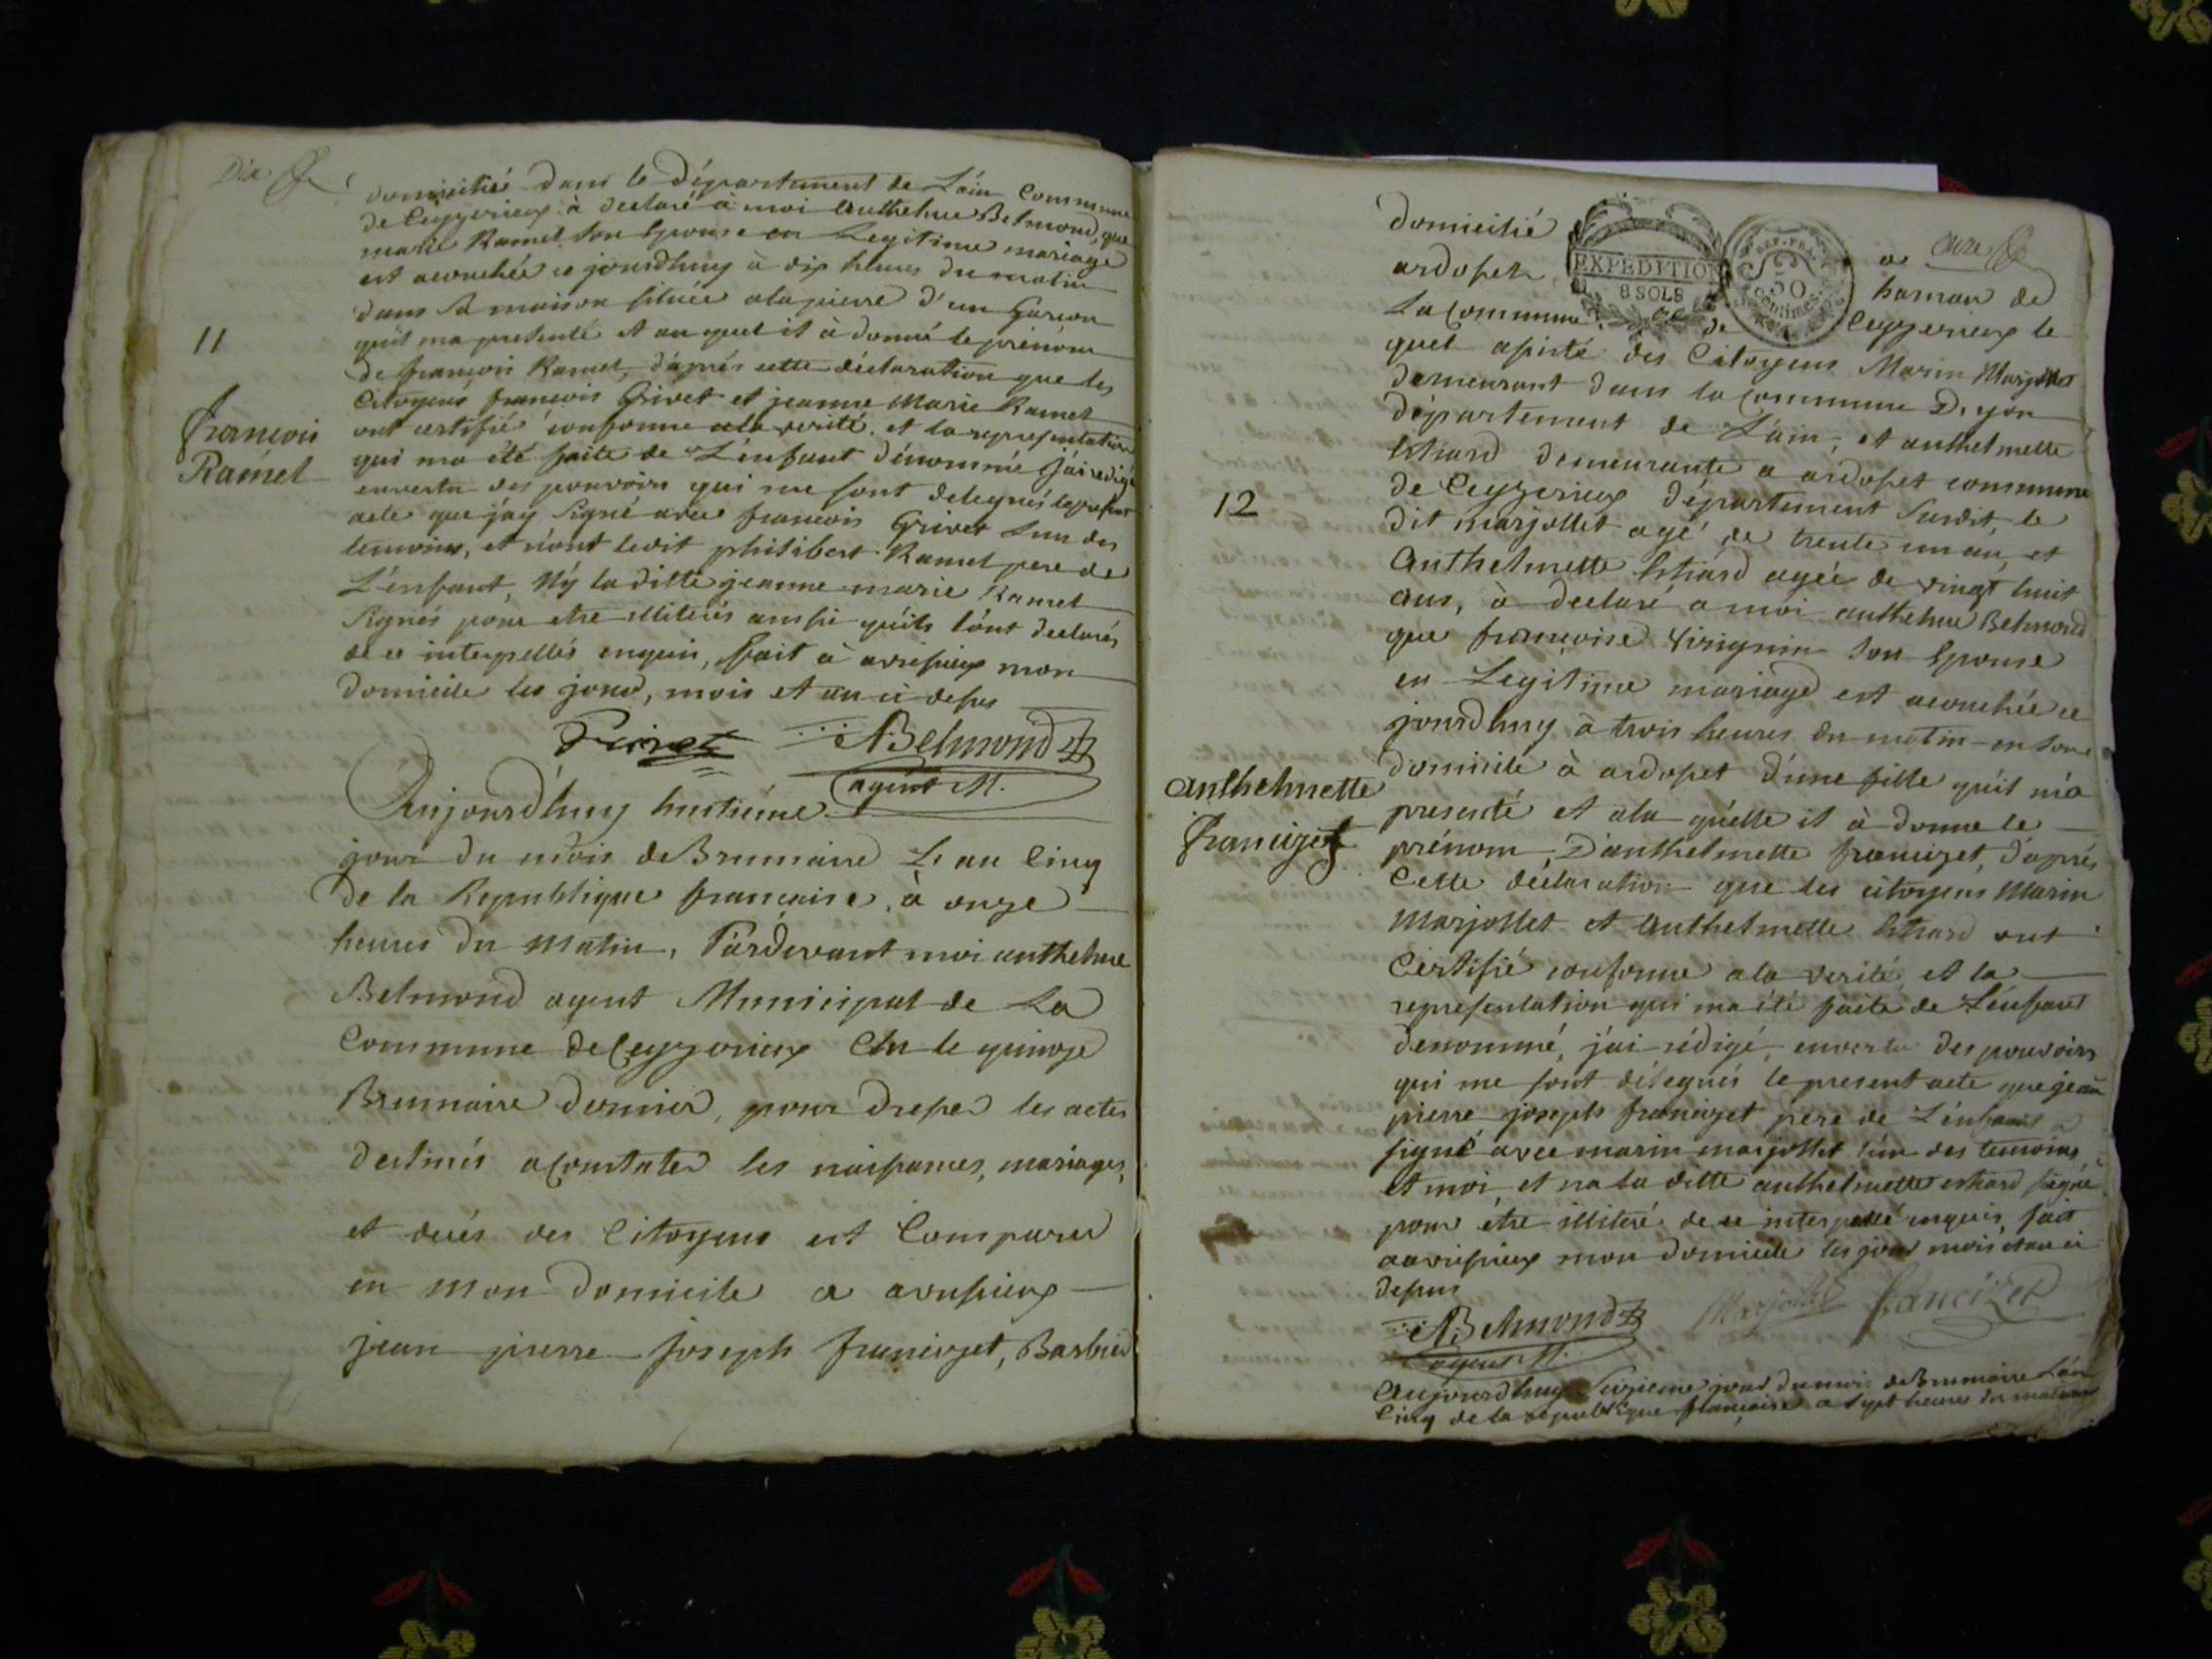 Dix
domicilié dans le Département de L'ain Commune
de Ceyzerieux à declaré à moi anthelme Belmond, que
marie Ramel son Epouse en Legitime mariage
est acouchée ce jourdhuy à dix heures du matin
dans sa maison située alapierre d'un Garcon
qu'il ma presenté et au quel il à donné le prénom
de francois Ramel, d'aprés cette déclaration que les
Citoyens francois Grivet et jeanne Marie Ramel
ont certifié conforme ala verité, et la representation
qui ma été faite de L'énfant dénommé j'ai redigé
envertu des pouvoirs qui me sont delegués le présent
acte que jáy signé avec francois Grivet Lun des
temoins, et n'ont ledit philibert Ramel pere de
L'énfant, Ny laditte jeanne marie Ramel
signés pour etre illiterés ainsi qu'ils lónt declarés
de ce interpellés enquis, fait à avrissieux mon
domicile les jour, mois et an ci dessus
11
francois
Ramel
Grivet
ABelmond
agent M.
Aujourd'huy huitiéme
jour du mois de Brumaire L'an Cinq
de la Republique francaise, à onze
heures du matin, Pardevant moi anthelme
Belmond agent Municipal de La
Commune de Ceyzerieux Elu le quinze
Brumaire dernier, pour dresser les actes
destinés aConstater les naissances, mariages,
et decés des Citoyens est Comparu
en mon domicile a avrissieux
jean pierre joseph francizet, Barbier
onze
domicilié a
ardosset hamau de
EXPEDITION
8 SOLS
REP. FRA.
50
centimes
La Commune de Ceyzerieux le
quel assisté des Citoyens Marin Marjollet
demeurant dans la Commune D'yon
département de L'ain, et anthelmette
demeurante a ardosset commune
de Ceyzerieux département susdit, le
dit marjollet agé de trente un an, et
Anthelmette agée de vingt huit
ans, à declaré a moi anthelme Belmond
que francoise virignin son Epouse
en Legitime mariage est acouchée ce
jourdhuy à trois heures du matin en son
domicile à ardosset d'une fille qu'il m'a
presenté et ala qu'elle il à donné le
prénom, D'anthelmette francizet, d'aprés
Cette declaration que les citoyens Marin
Marjollet et Anthelmette ont
Certifié conforme ala verité, et la
representation qui ma été faite de L'énfant
denommé, j'ai rédigé, envertu des pouvoirs
qui me sont délegués le present acte que jean
pierre joseph francizet pere de L'énfant a
signé avec marin marjollet l'un des temoins
et moi, et na la ditte anthelmette signé
pour étre illiteré de ce interpellé enquis, fait
aavrissieux mon domicile les jour mois et an ci
dessus
12
anthelmette
francizet
ABelmond
agent M.
Marjollet
francizet
Aujourdhuy seizieme jour du mois de Brumaire L'an
Cinq de la republique francaise a sept heures du matin